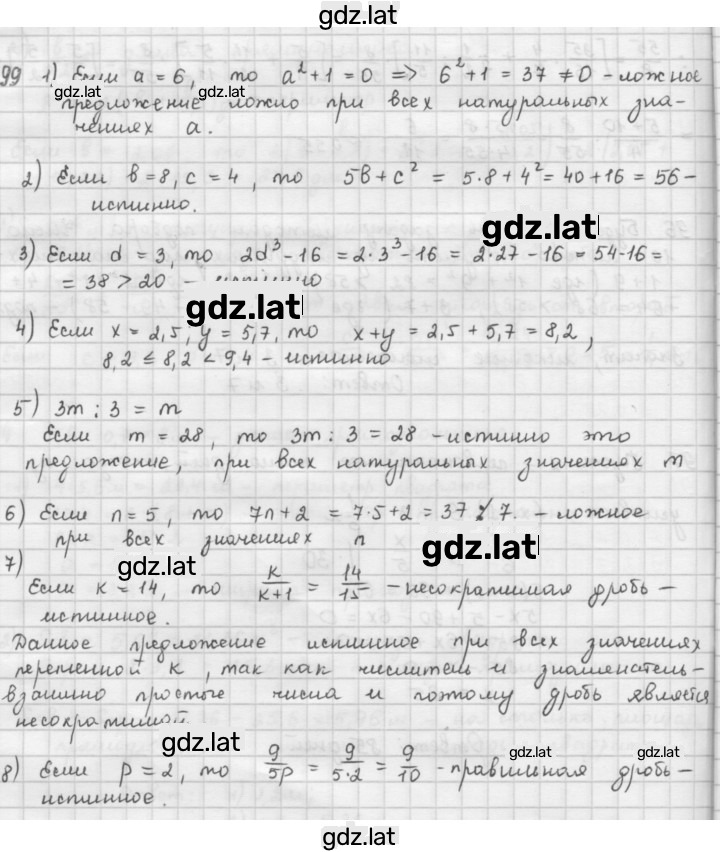 gdz.lat
99 1) Если a = 6, то a² + 1 = 0 => 6² + 1 = 37 ≠ 0 - ложное
gdz.lat gdz.lat
предложение ложно при всех натуральных зна-
чениях a.
2) Если b = 8, c = 4, то 5b + c² = 5·8 + 4² = 40 + 16 = 56 -
истинно.
gdz.lat
3) Если d = 3, то 2d³ - 16 = 2·3³ - 16 = 2·27 - 16 = 54 - 16 =
= 38 > 20 - истинно
gdz.lat
4) Если x = 2,5, y = 5,7, то x + y = 2,5 + 5,7 = 8,2,
8,2 ≤ 8,2 < 9,4 - истинно
5) 3m : 3 = m
Если m = 28, то 3m : 3 = 28 - истинно это
предложение, при всех натуральных значениях m
6) Если n = 5, то 7n + 2 = 7·5 + 2 = 37 ⋮̸ 7. - ложное
при всех значениях n
gdz.lat gdz.lat
7)
Если k = 14, то k/(k+1) = 14/15 - несократимая дробь -
истинное.
Данное предложение истинное при всех значениях
переменной k, так как числитель и знаменатель -
взаимно простые числа и поэтому дробь является
несократимой.
gdz.lat gdz.lat gdz.lat
8) Если p = 2, то 9/5p = 9/5·2 = 9/10 - правильная дробь -
истинное.
gdz.lat